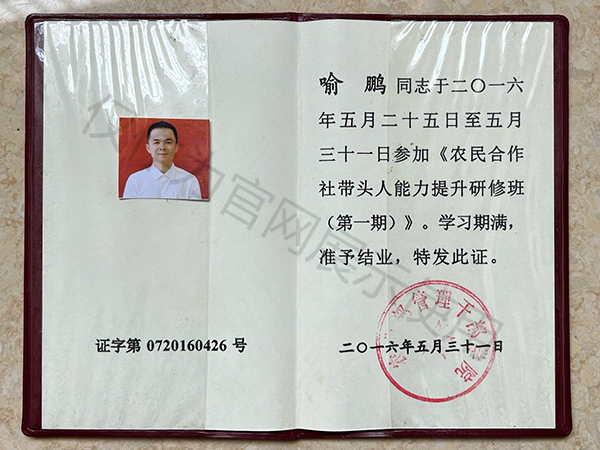 证字第 0720160426 号
喻 鹏 同志于二〇一六
年五月二十五日至五月
三十一日参加《农民合作
社带头人能力提升研修班
（第一期）》。学习期满，
准予结业，特发此证。
二〇一六年五月三十一日
管理干部
院
官网展示使用